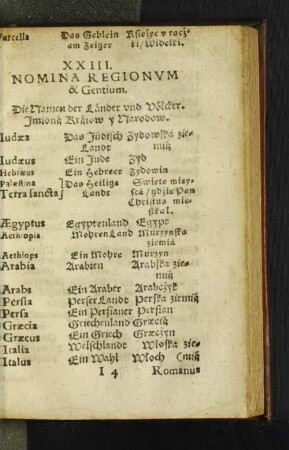 Furcella Das Geblein Księżyc v racz⸗
am Zeiger ki/Widelki.
XXIII.
NOMINA REGIONVM
& Gentium.
Die Namen der Länder vnd Völcker.
Imioná Kráiow y Narodow.
Iudæa Das Jüdisch Zydowska zie⸗
Landt miá
Iudæus Ein Jude Zyd
Hebræus Ein Hebreer Zydowin
Palæstina Das Heilige Swięte mieys⸗
Terra sancta Landt sca/gdzie Pan
Christus mie⸗
ßkal.
Ægyptus Egyptenland Egypt
Aethiopia MohrenLand Murzynska
ziemiá
Aethiops Ein Mohre Murzyn
Arabia Arabien Arabska zie⸗
miá
Arabs Ein Araber Arabczyk
Persia Perser Landt Perska ziemiá
Persa Ein Persianer Persian
Græcia Griechenland Græciá
Græcus Ein Griech Græczyn
Italia Welschlandt Wloska zie⸗
Italus Ein Wahl Wloch (miá
I 4 Romanus